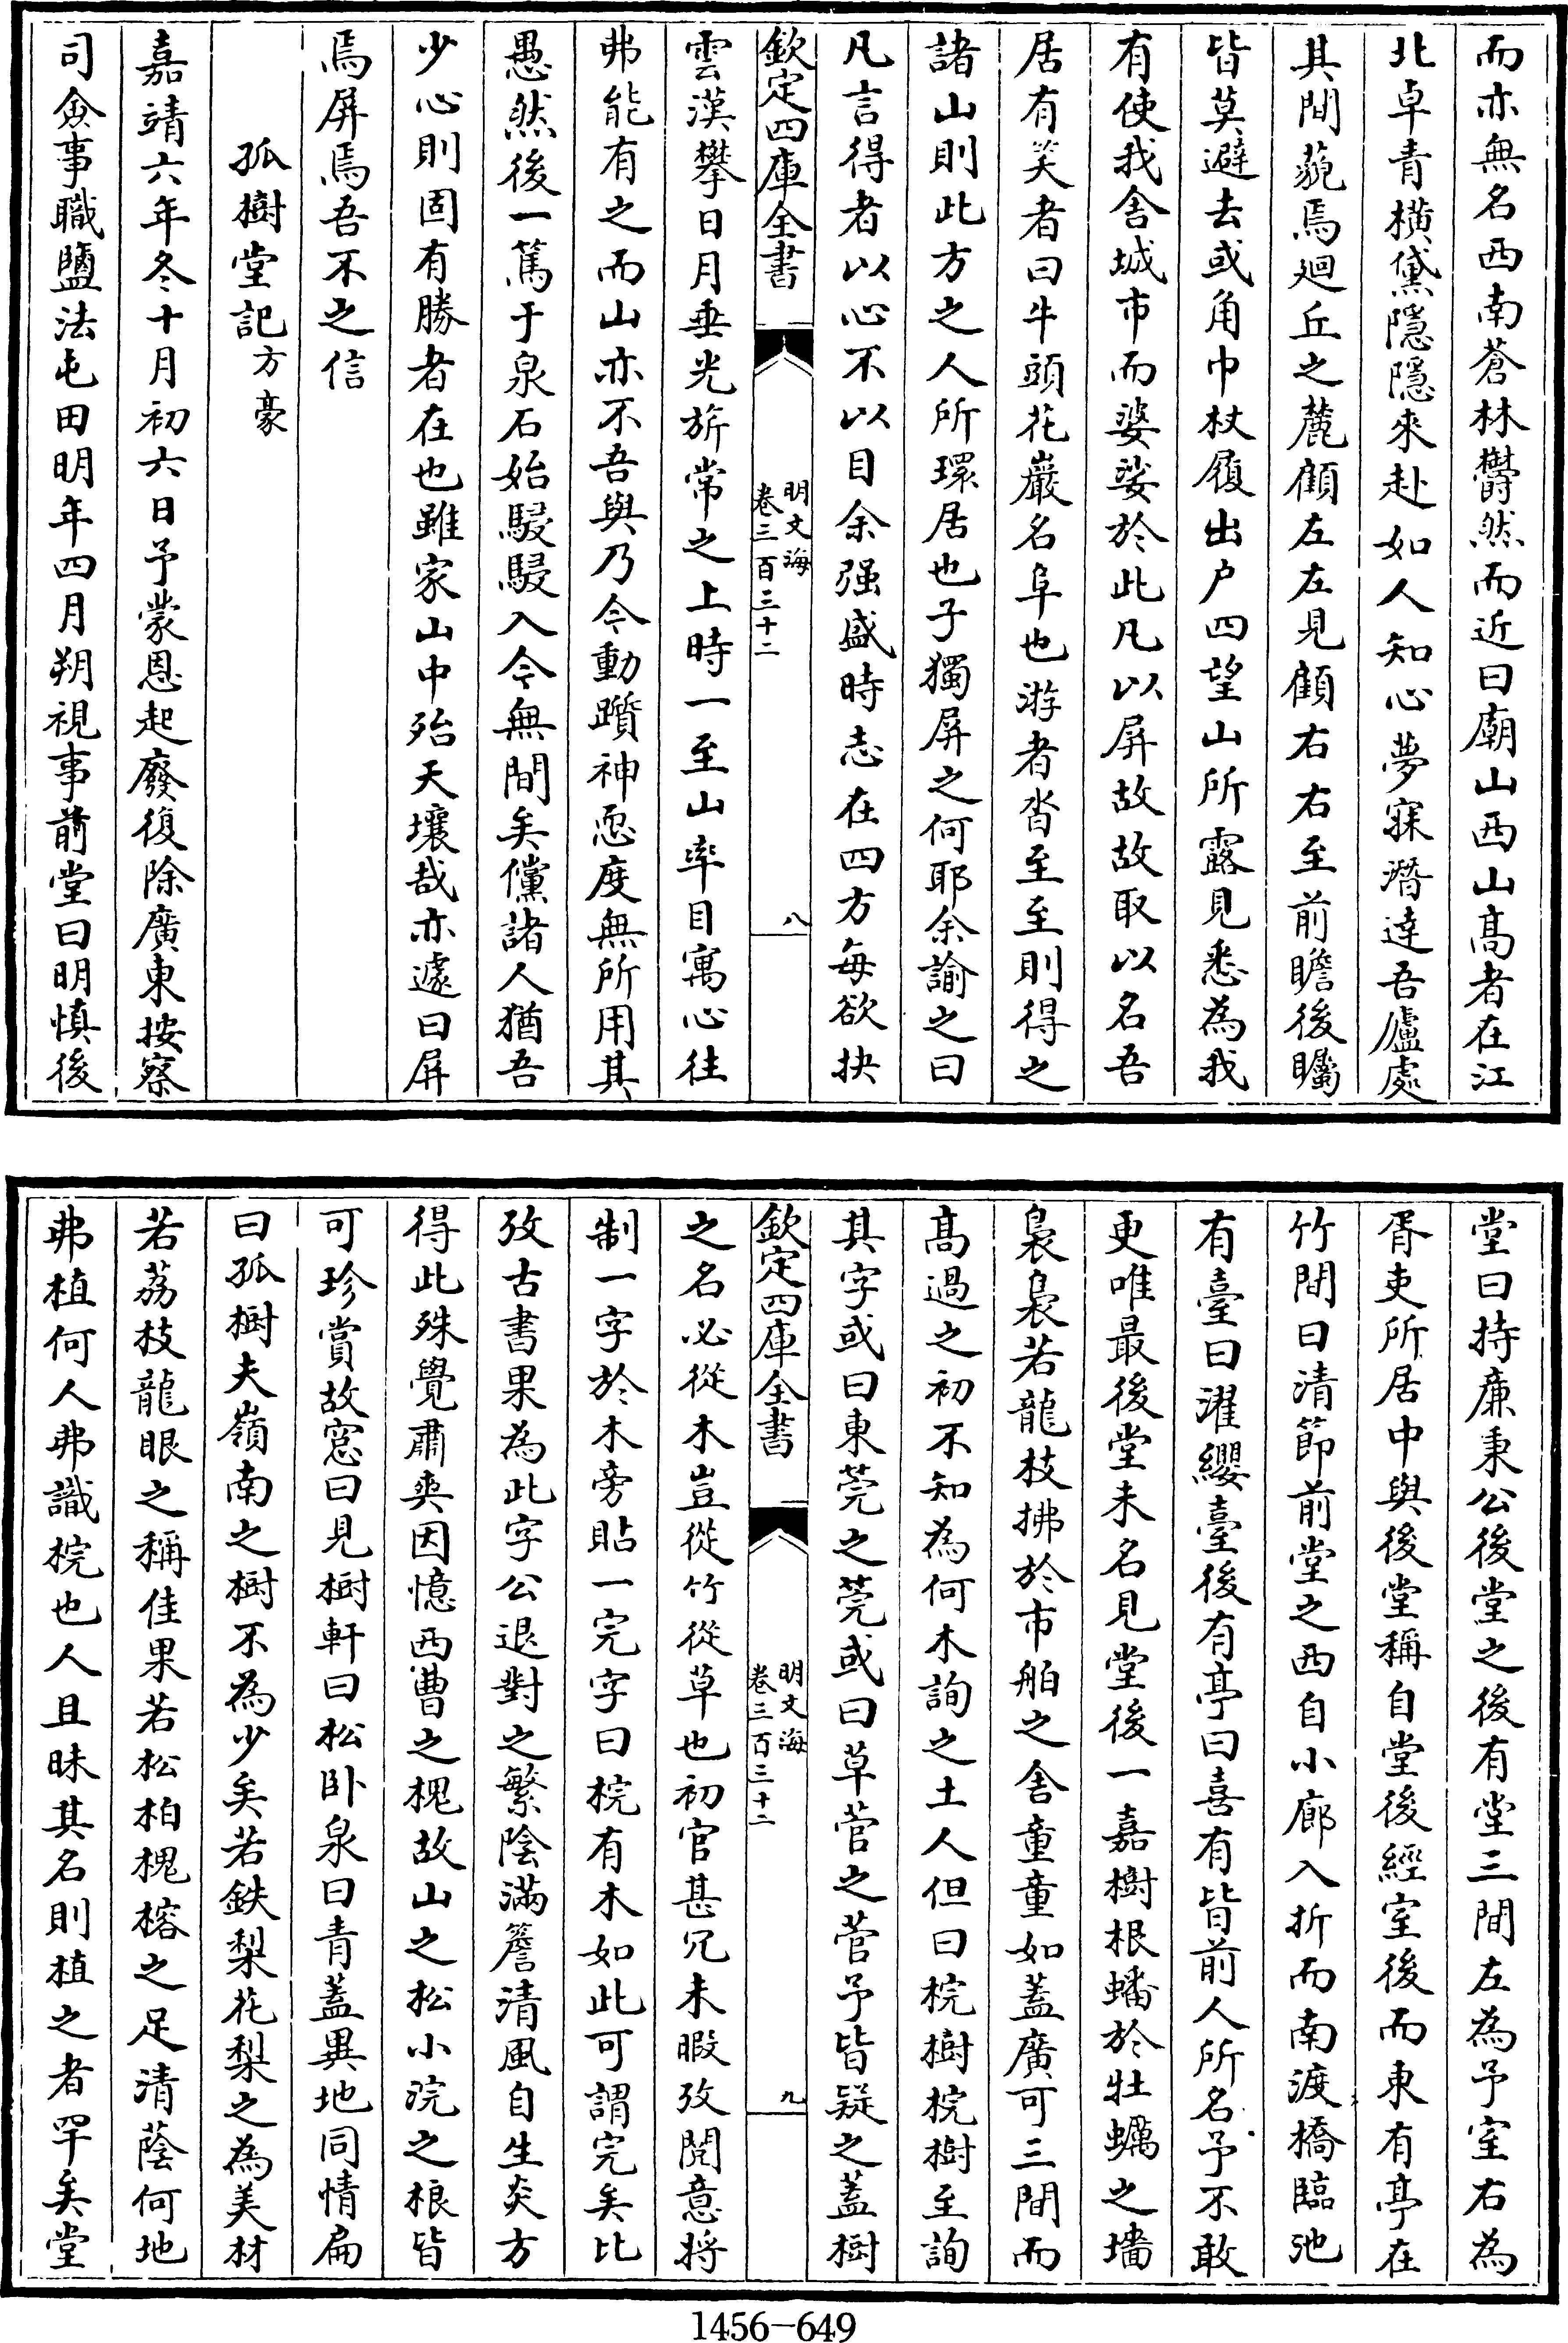 而亦無名西南蒼林欝然而近曰廟山西山髙者在江
北卓青橫黛隱隱來赴如人知心夢寐潛逹吾廬處
其間藐焉廻丘之麓顧左左見顧右右至前瞻後矚
皆莫避去或角巾杖履出户四望山所露見悉為我
有使我舎城市而婆娑於此凡以屏故故取以名吾
居有笑者曰牛頭花巖名阜也游者沓至至則得之
諸山則此方之人所環居也子獨屏之何耶余諭之曰
凡言得者以心不以目余强盛時志在四方每欲抉
欽定四庫全書
明文海
卷三百三十二
八
雲漢攀日月垂光旂常之上時一至山率目寓心往
弗能有之而山亦不吾與乃今動躓神恧度無所用其
愚然後一篤于泉石始駸駸入今無間矣儻諸人猶吾
少心則固有勝者在也雖家山中殆天壤哉亦遽曰屏
焉屏焉吾不之信
孤樹堂記方豪
嘉靖六年冬十月初六日予蒙恩起廢復除廣東按察
司僉事職鹽法屯田明年四月朔視事前堂曰明慎後
堂曰持亷秉公後堂之後有堂三間左為予室右為
胥吏所居中與後堂稱自堂後經室後而東有亭在
竹間曰清節前堂之西自小廊入折而南渡橋臨池
有臺曰濯纓臺後有亭曰喜有皆前人所名予不敢
更唯最後堂未名見堂後一嘉樹根蟠於牡蠣之墻
裊裊若龍枝拂於市舶之舎童童如葢廣可三間而
髙過之初不知為何木詢之土人但曰梡樹梡樹至詢
其字或曰東莞之莞或曰草菅之菅予皆疑之葢樹
欽定四庫全書
明文海
卷三百三十二
九
之名必從木豈從竹從草也初官甚冗未暇攷閱意將
制一字於木旁貼一完字曰梡有木如此可謂完矣比
攷古書果為此字公退對之繁陰滿簷清風自生炎方
得此殊覺肅爽因憶西曹之槐故山之松小浣之桹皆
可珍賞故窓曰見樹軒曰松卧泉曰青葢異地同情扁
曰孤樹夫嶺南之樹不為少矣若鉄梨花梨之為美材
若荔枝龍眼之稱佳果若松柏槐榕之足清蔭何地
弗植何人弗識梡也人且昧其名則植之者罕矣堂
1456-649